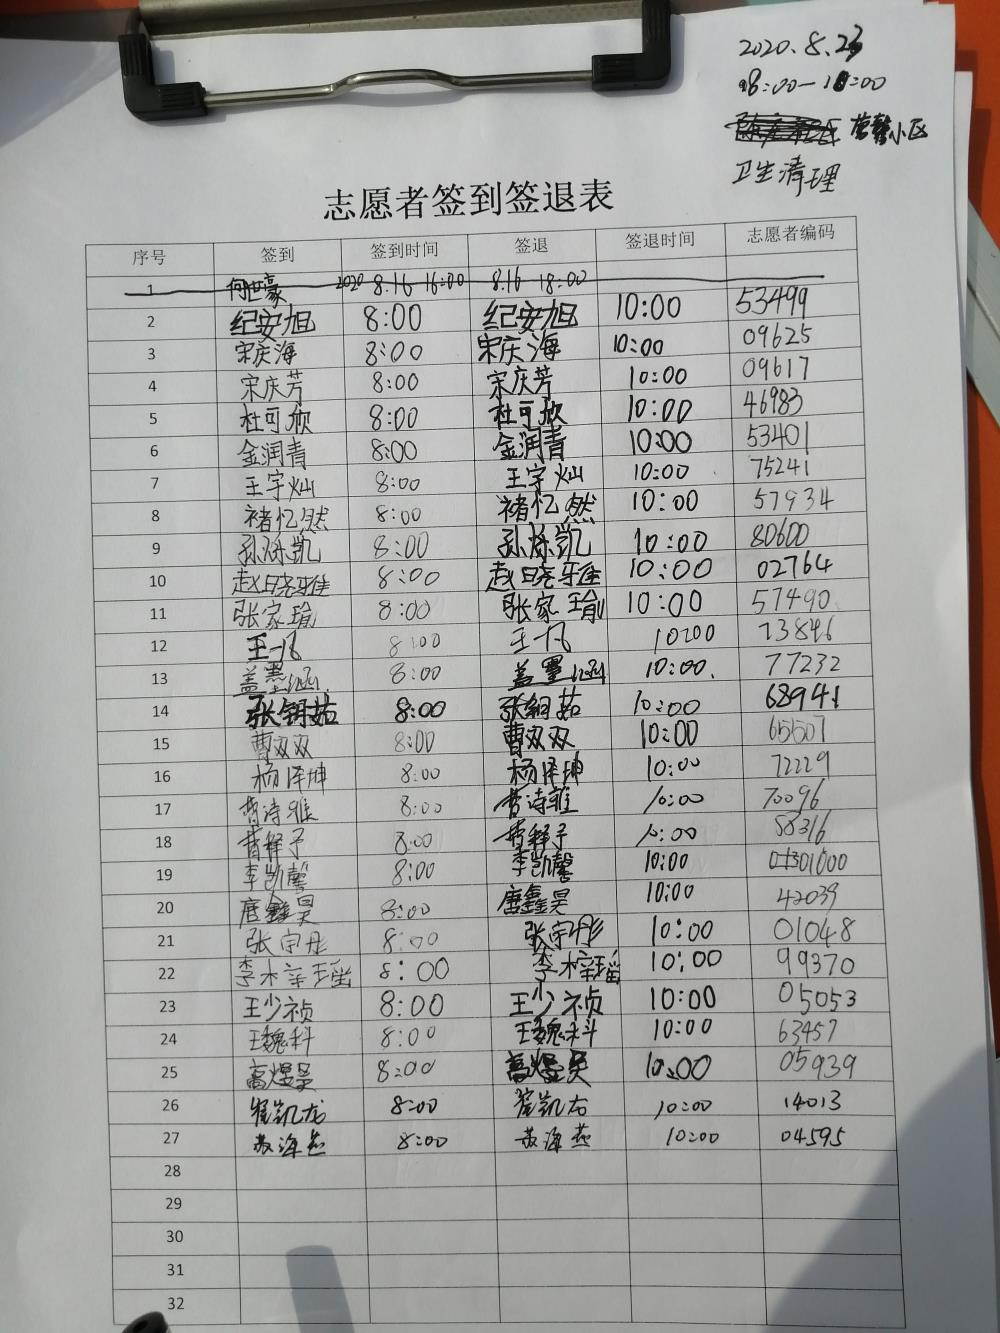 2020.8.23
8:00—10:00
小区
卫生清理
志愿者签到签退表
序号 签到 签到时间 签退 签退时间 志愿者编码
1 何世豪 2020 8.16 16:00 8.16 18:00
2 纪安旭 8:00 纪安旭 10:00 53499
3 宋庆海 8:00 宋庆海 10:00 09625
4 宋庆芳 8:00 宋庆芳 10:00 09617
5 杜可欣 8:00 杜可欣 10:00 46983
6 金润青 8:00 金润青 10:00 53401
7 王宇灿 8:00 王宇灿 10:00 75241
8 褚忆然 8:00 褚忆然 10:00 57934
9 孙烁凯 8:00 孙烁凯 10:00 80600
10 赵晓雅 8:00 赵晓雅 10:00 02764
11 张家瑜 8:00 张家瑜 10:00 57490
12 王一凡 8:00 王一凡 10:00 23846
13 盖墨涵 8:00 盖墨涵 10:00 77232
14 张钥茹 8:00 张钥茹 10:00 68941
15 曹双双 8:00 曹双双 10:00 65507
16 杨泽坤 8:00 杨泽坤 10:00 72229
17 曹诗雅 8:00 曹诗雅 10:00 70096
18 曹释予 8:00 曹释予 10:00 58316
19 李凯馨 8:00 李凯馨 10:00 01000
20 唐鑫昊 8:00 唐鑫昊 10:00 42039
21 张宇彤 8:00 张宇彤 10:00 01048
22 李梓瑶 8:00 李梓瑶 10:00 99370
23 王少祯 8:00 王少祯 10:00 05053
24 王魏科 8:00 王魏科 10:00 63457
25 高煜昊 8:00 高煜昊 10:00 05939
26 崔凯龙 8:00 崔凯龙 10:00 14013
27 苏海燕 8:00 苏海燕 10:00 04595
28
29
30
31
32